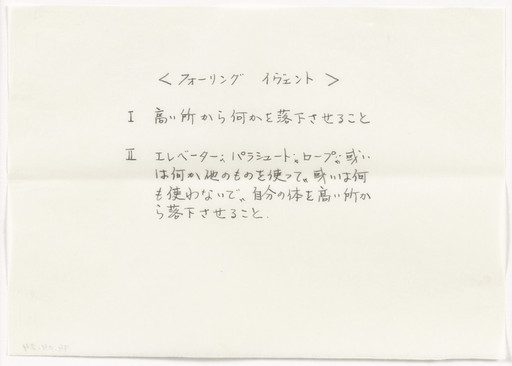 < フォーリング イヴェント >
I 高い所から何かを落下させること
II エレベーター、パラシュート、ロープ、或い
は何か他のものを使って、或いは何
も使わないで、自分の体を高い所か
ら落下させること.